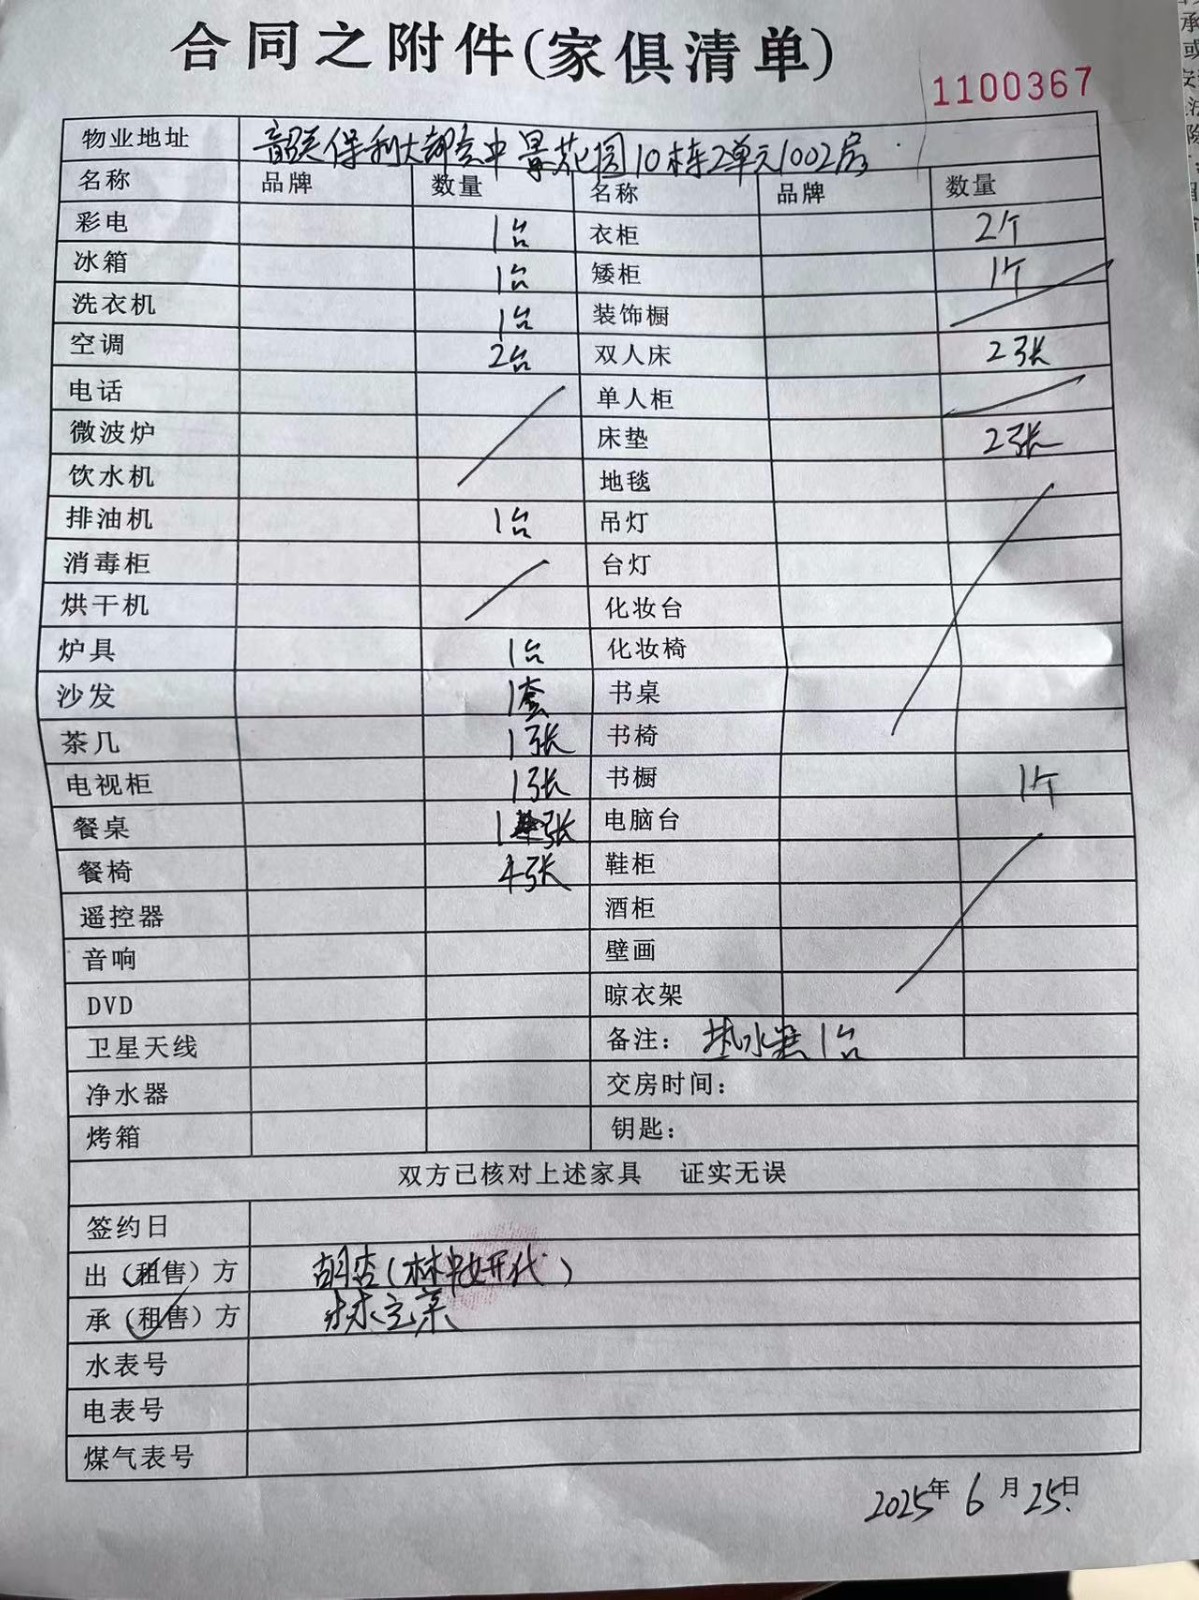 合同之附件(家俱清单)
1100367
物业地址 韶关保利大都会中景花园10栋2单元1002房
名称 品牌 数量 名称 品牌 数量
彩电 1台 衣柜 2个
冰箱 1台 矮柜 1个
洗衣机 1台 装饰橱
空调 2台 双人床 2张
电话 单人柜
微波炉 床垫 2张
饮水机 地毯
排油机 1台 吊灯
消毒柜 台灯
烘干机 化妆台
炉具 1台 化妆椅
沙发 1套 书桌
茶几 1张 书椅
电视柜 1张 书橱 1个
餐桌 1张 电脑台
餐椅 4张 鞋柜
遥控器 酒柜
音响 壁画
DVD 晾衣架
卫星天线 备注: 热水器1台
净水器 交房时间:
烤箱 钥匙:
双方已核对上述家具 证实无误
签约日
出(租售)方 胡杏(林 代)
承(租售)方
水表号
电表号
煤气表号
2025年6月25日